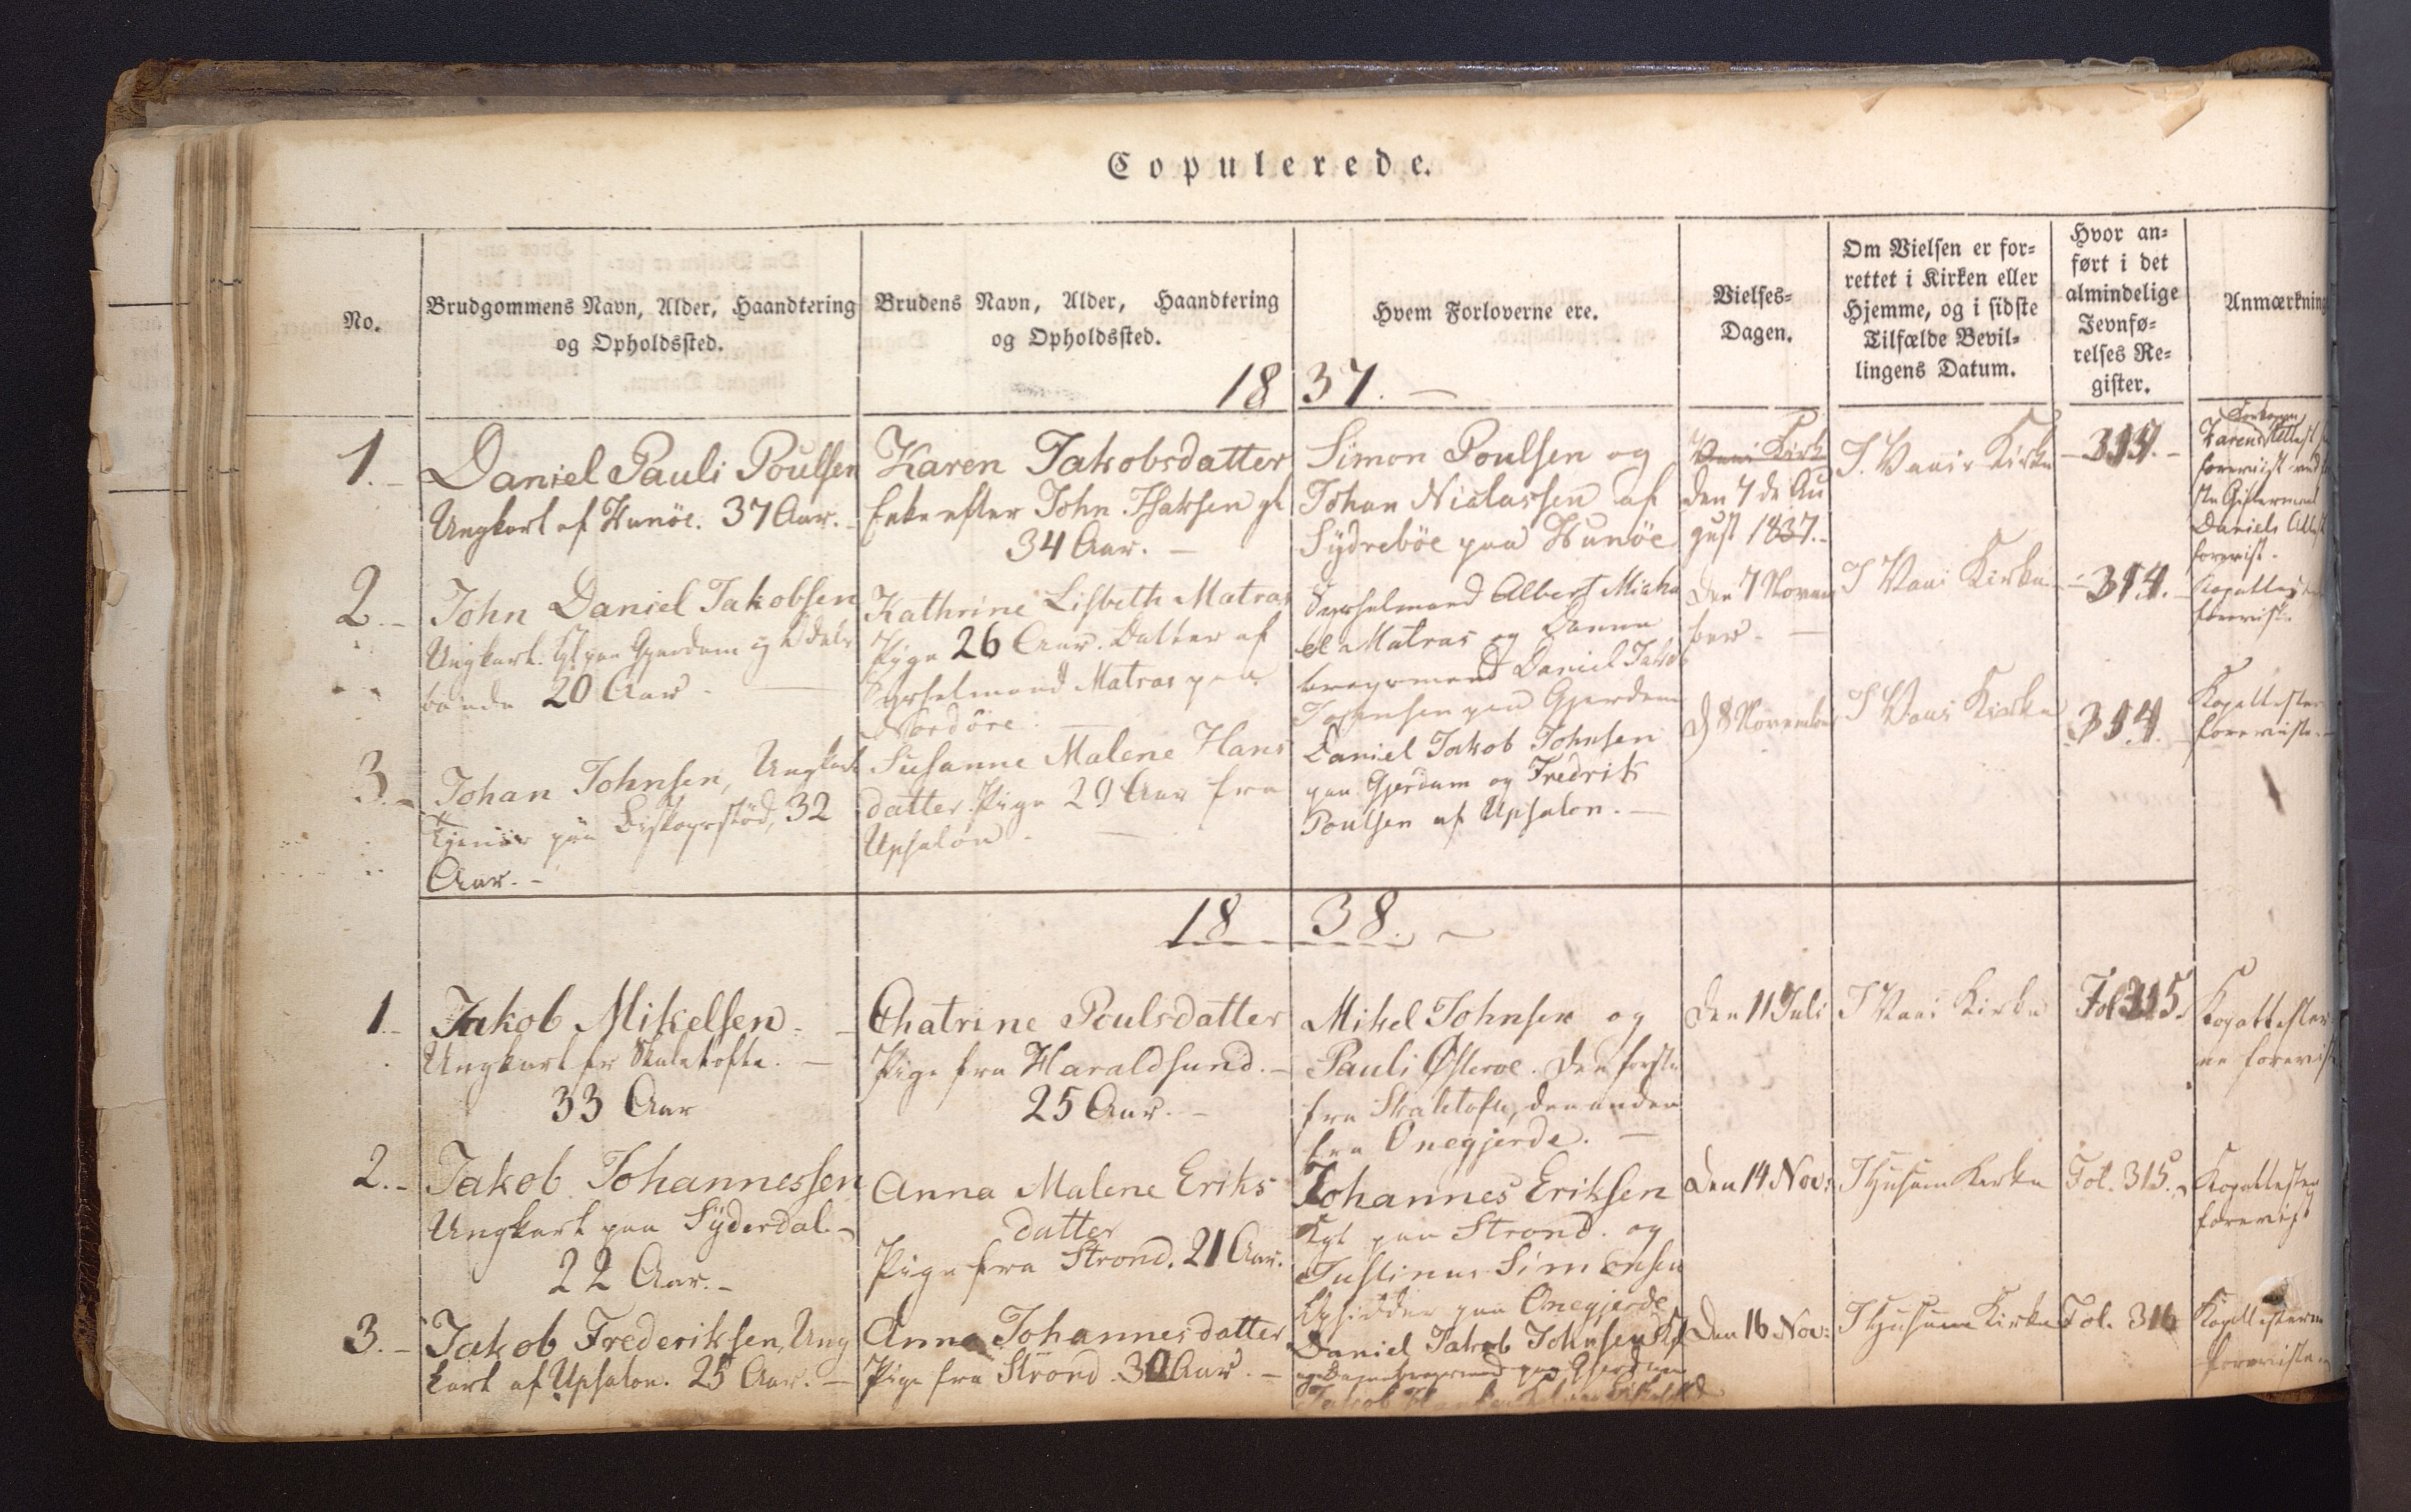 Copulerede.
No.
Brudgommens Navn, Alder, Haandtering
og Opholdssted.
Brudens Navn, Alder, Haandtering
og Opholdssted.
Hvem Forloverne ere.
Vielses-
Dagen.
Om Vielsen er for-
rettet i Kirken eller
Hjemme, og i sidste
Tilfælde Bevil-
lingens Datum.
Hvor an-
ført i det
almindelige
Jevnfø-
relses Re-
gister.
Anmærkning
18 37.
1.
Daniel Pauli Poulsen
Ungkarl af Kunöe. 37 Aar.
Karen Jakobsdatter
Enke efter John Isaksen
34 Aar.
Simon Poulsen og
Johan Niclassen af
Sydreböe paa Kunöe
Vaai Kirk
den 7de Au
gust 1837.
I Vaais Kirke
Karens
forevist ved
Giftermaal
Daniels Attest
forevist.
2.
John Daniel Jakobsen
Ungkarl. paa Gjerdum og Odels
bonde 20 Aar
Kathrine Lisbeth Matras
Pige 26 Aar. Datter af
Sysselmand Matras paa
Nordöre.
Sysselmand Albert Micha
el Matras og Danne
brogsmand Daniel Jakob
Johnsen paa Gjerdum
Den 7 Novem
ber.
I Vaai Kirke
314.
Kopattester
forevist.
3.
Johan Johnsen, Ungkarl
Tjener paa Biskopsstöd, 32
Aar.
Susanne Malene Hans
datter Pige 29 Aar fra
Upsalon
Daniel Jakob Johnsen
paa Gjerdum og Fredrik
Poulsen af Upsalon.
D 8 November
I Vaais Kirke
314.
Kopattester
foreviste.
18 38.
1.
Jakob Mikelsen
Ungkarl fr Skaletofte.
33 Aar
Chatrine Poulsdatter
Pige fra Haraldsund.
25 Aar.
Mikel Johnsen og
Pauli Østeroe. Den förste
fra Skaletofte, den anden
fra Önegjerde.
Den 11 Juli
I Vaai Kirke
Fol 315.
Kopattester
ne forevist
2.
Jakob Johannessen
Ungkarl paa Syderdal.
22 Aar.
Anna Malene Eriks
datter
Pige fra Strond. 21 Aar.
Johannes Eriksen
Kgl paa Strond. og
Justinus Simonsen
Opsidder paa Önegjerde
Den 14 Nov:
I Husum Kirke
Fol. 315.
Kopattester
forevist
3.
Jakob Frederiksen, Ung
karl af Upsalon. 25 Aar.
Anna Johannesdatter
Pige fra Strond. 30 Aar.
Daniel Jakob Johnsen
og Dannebrogsmand paa Gjerdum
Jakob
Den 16 Nov:
I Husum Kirke
Fol. 316
Kopattesterne
foreviste